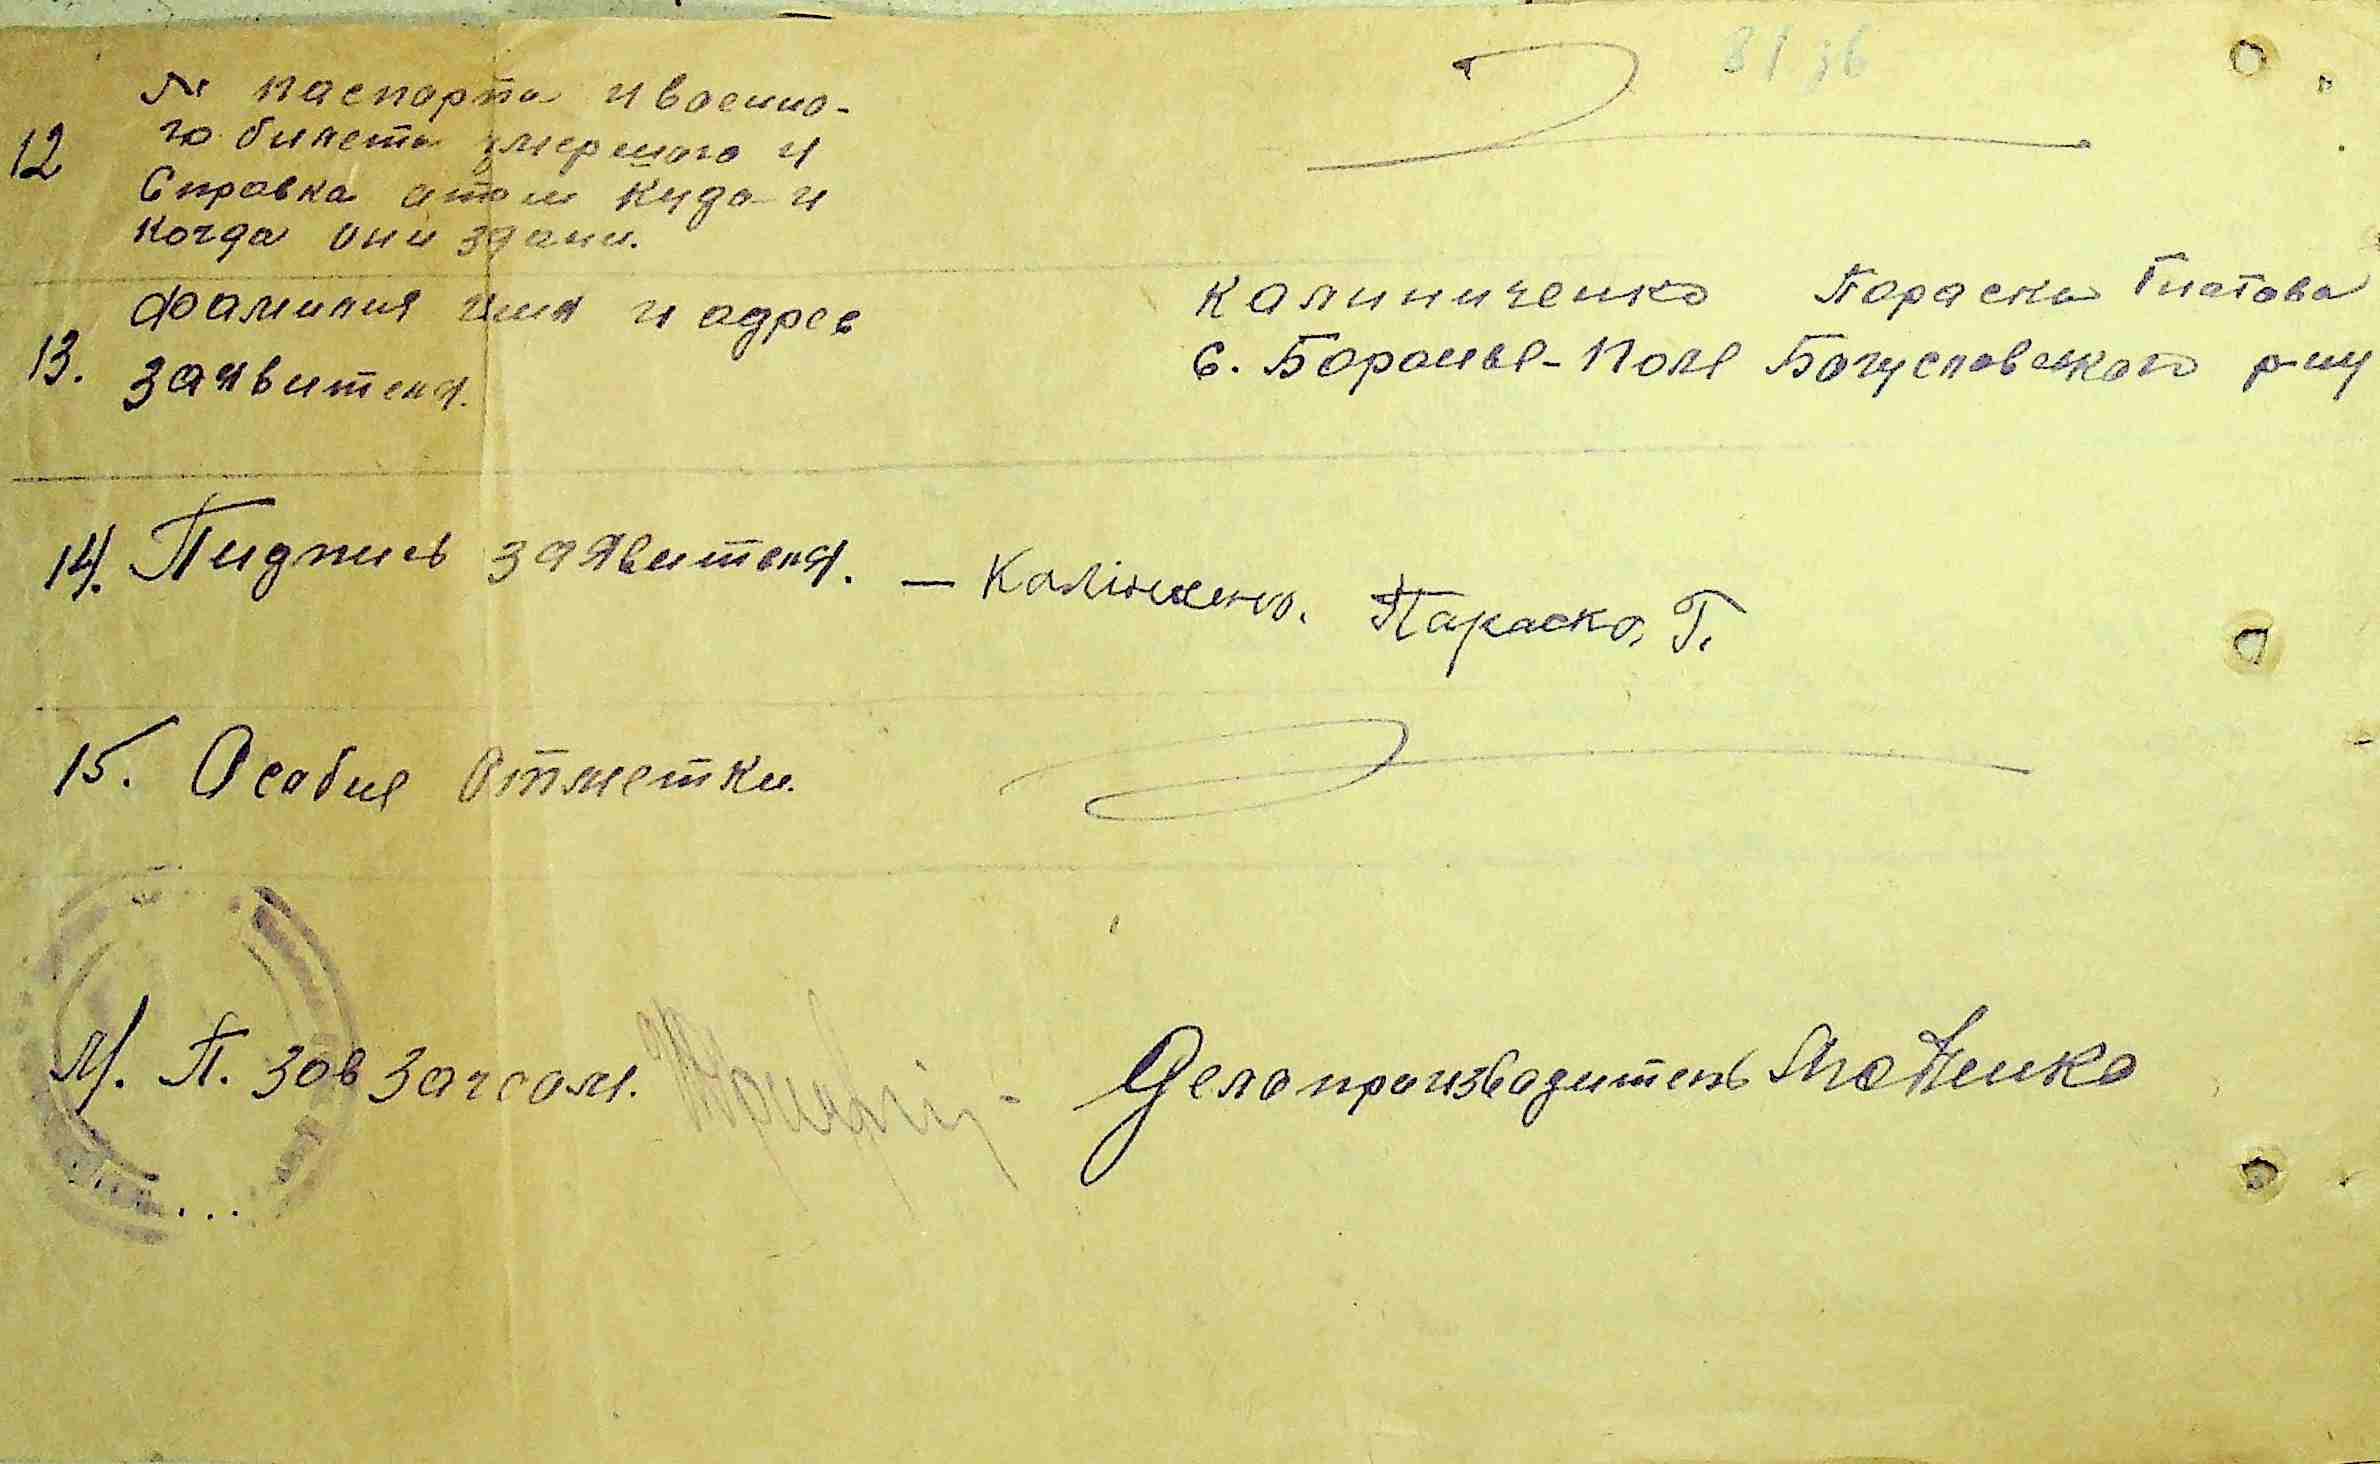 12 № паспорта и военно-
го билета умершого и
Справка отом куда и
когда они здани.
13. Фамилия имя и адрес
заявителя.
Калиниченко Параска
С. Боранье-Поле Богуславского р-ну
14. Пидпись заявителя. — Калініченко. Параска, Г.
15. Особие отметки.
М. П. Зав Загсом.
Делопроизводитель